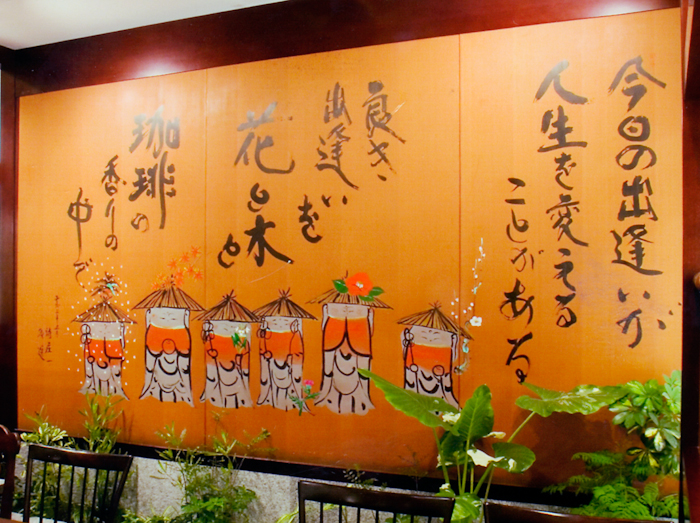 今日の出逢いが
人生を変える
ことがある
良き
出逢い
を
花と木と
珈琲の
香りの
中で